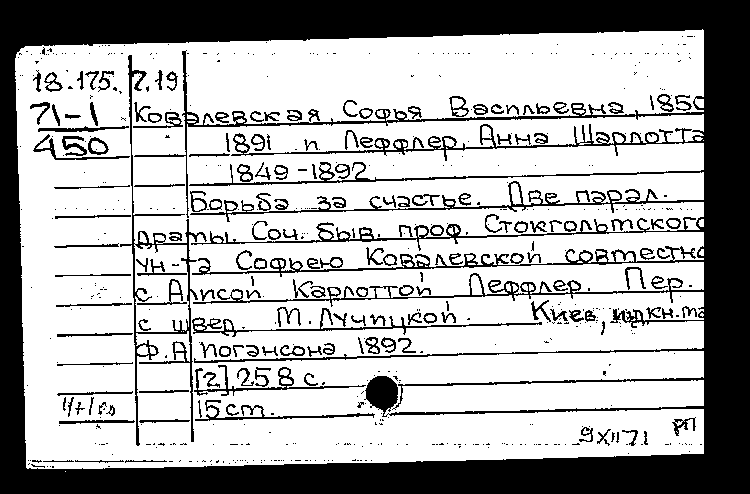 18.175. 7.19
71-1 Ковалевская, Софья Васильевна, 1850
450 1891 и Леффлер, Анна Шарлотта
1849-1892
Борьба за счастье. Две парал.
драмы. Соч. быв. проф. Стокгольмского
ун-та Софьею Ковалевской совместно
с Алисой Карлоттой Леффлер. Пер.
с швед. М. Лучицкой. Киев, изд. кн. ма
Ф.А. Иогансона, 1892.
[2], 258 с.
15 см.
9 XII 71 РП